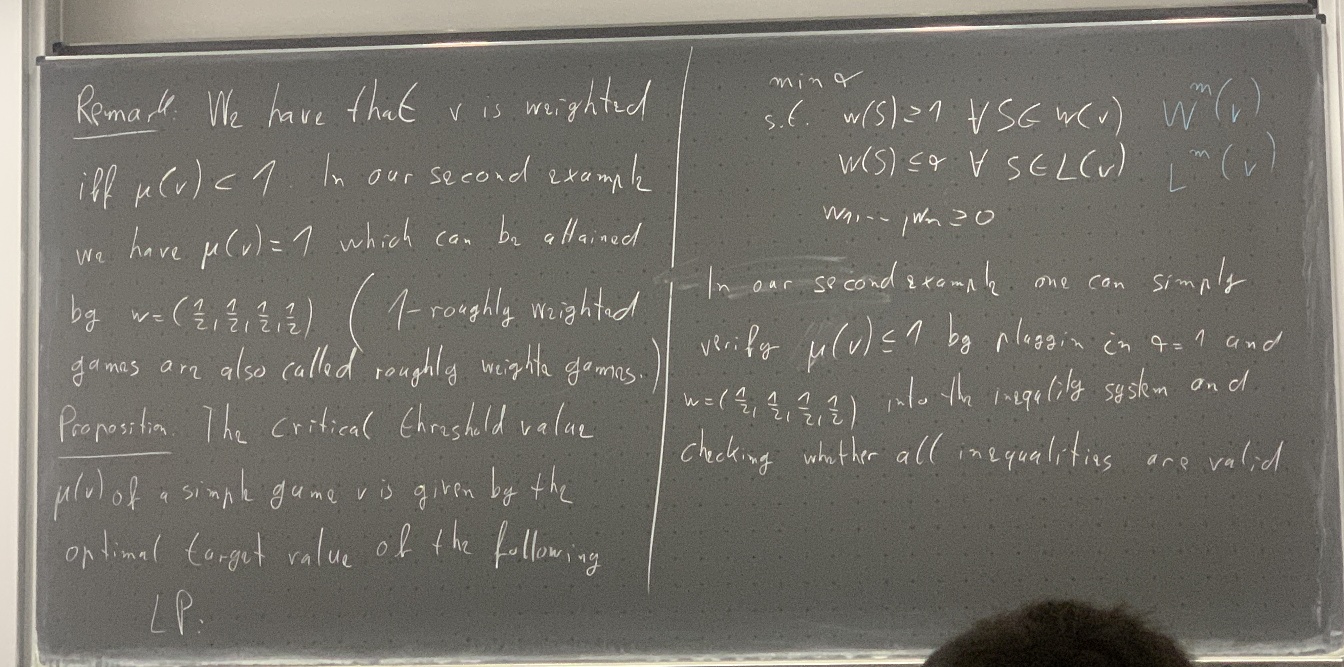 Remark: We have that v is weighted
iff μ(v) < 1. In our second example
we have μ(v) = 1 which can be attained
by w = (1/2, 1/2, 1/2, 1/2) ( 1-roughly weighted
games are also called roughly weighte games.)
Proposition: The critical threshold value
μ(v) of a simple game v is given by the
optimal target value of the following
LP:
min α
s.t. w(S) ≥ 1 ∀ S ∈ W(v) W^m(v)
w(S) ≤ α ∀ S ∈ L(v) L^m(v)
w1, ..., wn ≥ 0
In our second example one can simply
verify μ(v) ≤ 1 by pluggin in α = 1 and
w = (1/2, 1/2, 1/2, 1/2) into the inequality system and
checking whether all inequalities are valid